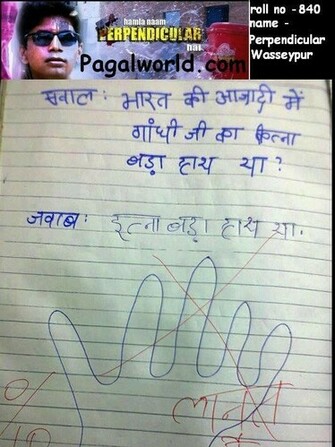 hamla naam
PERPENDICULAR
hai.
Pagalworld.com
roll no - 840
name -
Perpendicular
Wasseypur
सवाल: भारत की आज़ादी में
गांधी जी का कितना
बड़ा हाथ था?
जवाब: इतना बड़ा हाथ था.
लानत
0/10